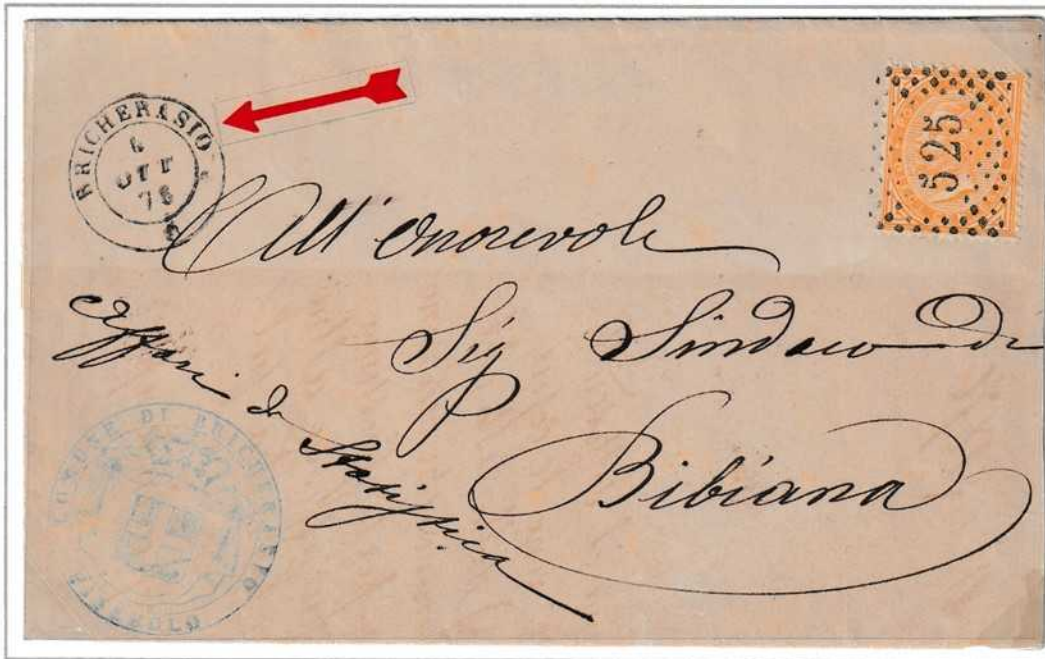 BRICHERASIO
OTT
525
All' Onorevole
Sig Sindaco Di
Bibiana
Affari di Statistica
COMUNE DI BRICHERASIO
PINEROLO